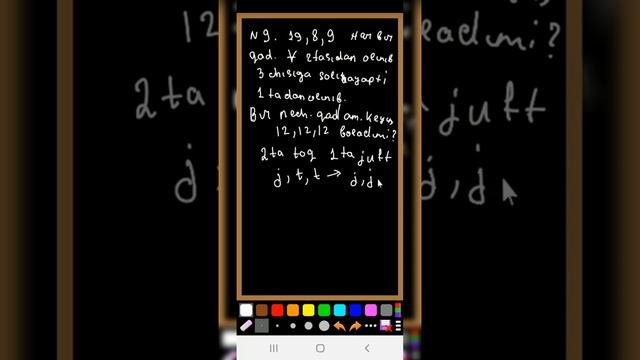 N9. 19,8,9 Har bir
qad. ∀ 2tasidan olinib
3 chisiga solinyapti
1 tadan olinib.
Bir nech. qadam. keyin
12,12,12 boladimi?
2ta toq 1ta juft
j, t, t → j, j